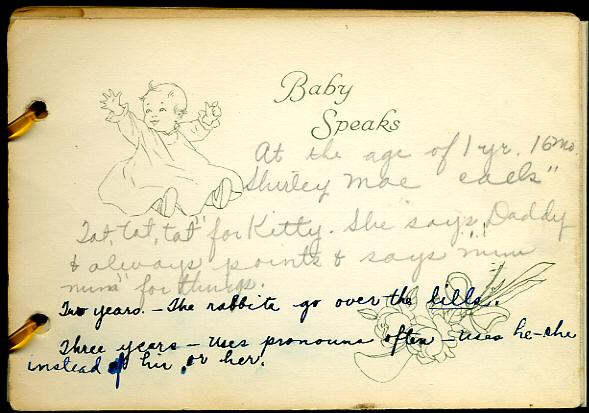 Baby
Speaks
At the age of 1 yr. 16mo.
Shirley Mae calls"
Tat, tat, tat" for Kitty. She "says, Daddy
& always points & says "mum
mum" for things.
Two years. – The rabbits go over the hills.
Three years – Uses pronouns often – uses he–she
instead of his or her.